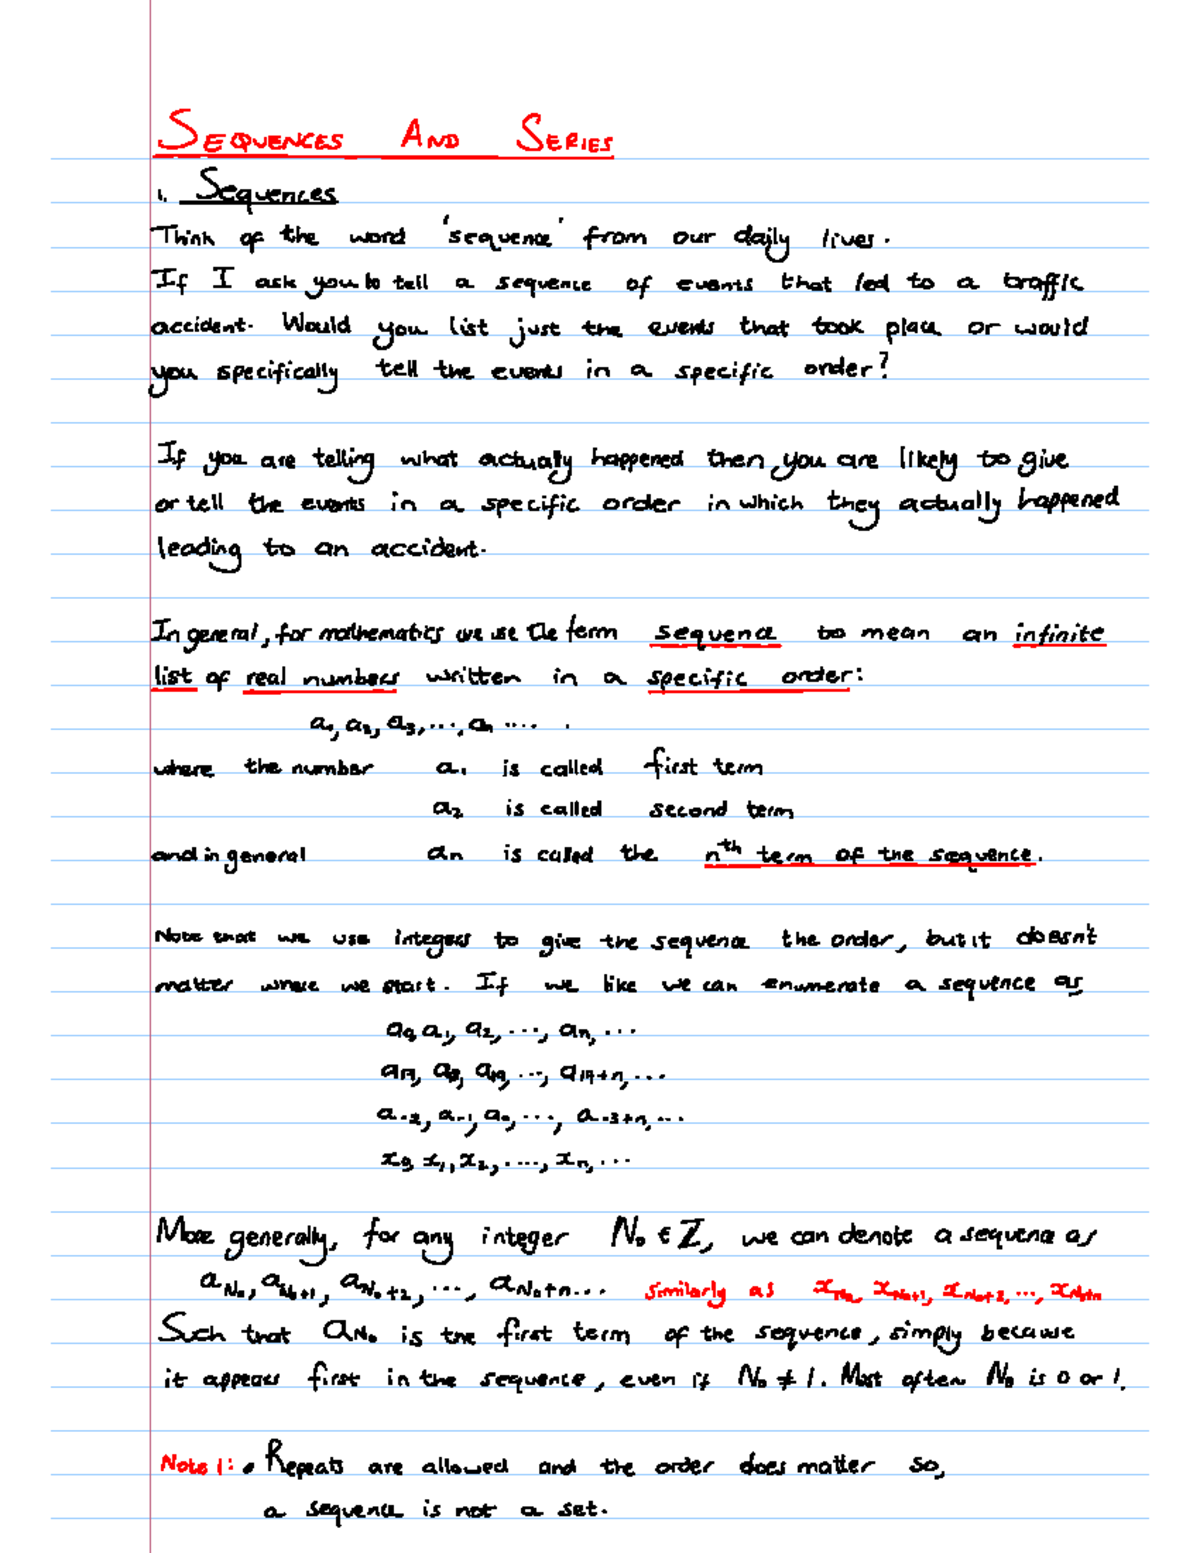 SEQUENCES AND SERIES
1. Sequences
Think of the word 'sequence' from our daily lives.
If I ask you to tell a sequence of events that led to a traffic
accident. Would you list just the events that took place or would
you specifically tell the events in a specific order?
If you are telling what actually happened then, you are likely to give
or tell the events in a specific order in which they actually happened
leading to an accident.
In general, for mathematics we use the term sequence to mean an infinite
list of real numbers written in a specific order:
a₁, a₂, a₃, ..., aₙ .... .
where the number a₁ is called first term
a₂ is called second term
and in general aₙ is called the nᵗʰ term of the sequence.
Note that we use integers to give the sequence the order, but it doesn't
matter where we start. If we like we can enumerate a sequence as
a₀, a₁, a₂, ..., aₙ, ...
a₁₇, a₁₈, a₁₉, ..., a₁₇₊ₙ, ...
a₋₂, a₋₁, a₀, ..., a₋₃₊ₙ, ...
x₀, x₁, x₂, ...., xₙ, ...
More generally, for any integer N₀ ∈ ℤ, we can denote a sequence as
a_N₀, a_N₀+1, a_N₀+2, ..., a_N₀+n... similarly as x_N₀, x_N₀+1, x_N₀+2, ..., x_N₀+n
Such that a_N₀ is the first term of the sequence, simply because
it appears first in the sequence, even if N₀ ≠ 1. Most often N₀ is 0 or 1.
Note 1: • Repeats are allowed and the order does matter so,
a sequence is not a set.